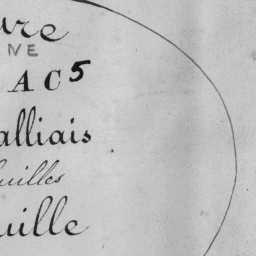 ure
NE
AC5
alliais
uilles
uille